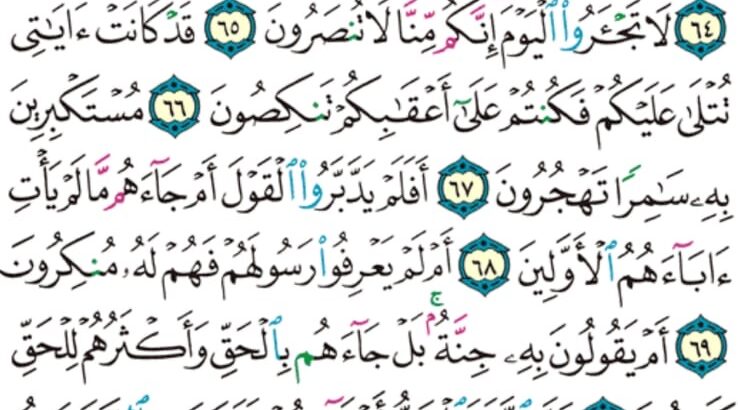 ٦٤ لَا تَجْـَٔرُوا۟ ٱلْيَوْمَ إِنَّكُم مِّنَّا لَا تُنصَرُونَ ٦٥ قَدْ كَانَتْ ءَايَـٰتِى
تُتْلَىٰ عَلَيْكُمْ فَكُنتُمْ عَلَىٰٓ أَعْقَـٰبِكُمْ تَنكِصُونَ ٦٦ مُسْتَكْبِرِينَ
بِهِۦ سَـٰمِرًا تَهْجُرُونَ ٦٧ أَفَلَمْ يَدَّبَّرُوا۟ ٱلْقَوْلَ أَمْ جَآءَهُم مَّا لَمْ يَأْتِ
ءَابَآءَهُمُ ٱلْأَوَّلِينَ ٦٨ أَمْ لَمْ يَعْرِفُوا۟ رَسُولَهُمْ فَهُمْ لَهُۥ مُنكِرُونَ
٦٩ أَمْ يَقُولُونَ بِهِۦ جِنَّةٌۢ ۚ بَلْ جَآءَهُم بِٱلْحَقِّ وَأَكْثَرُهُمْ لِلْحَقِّ